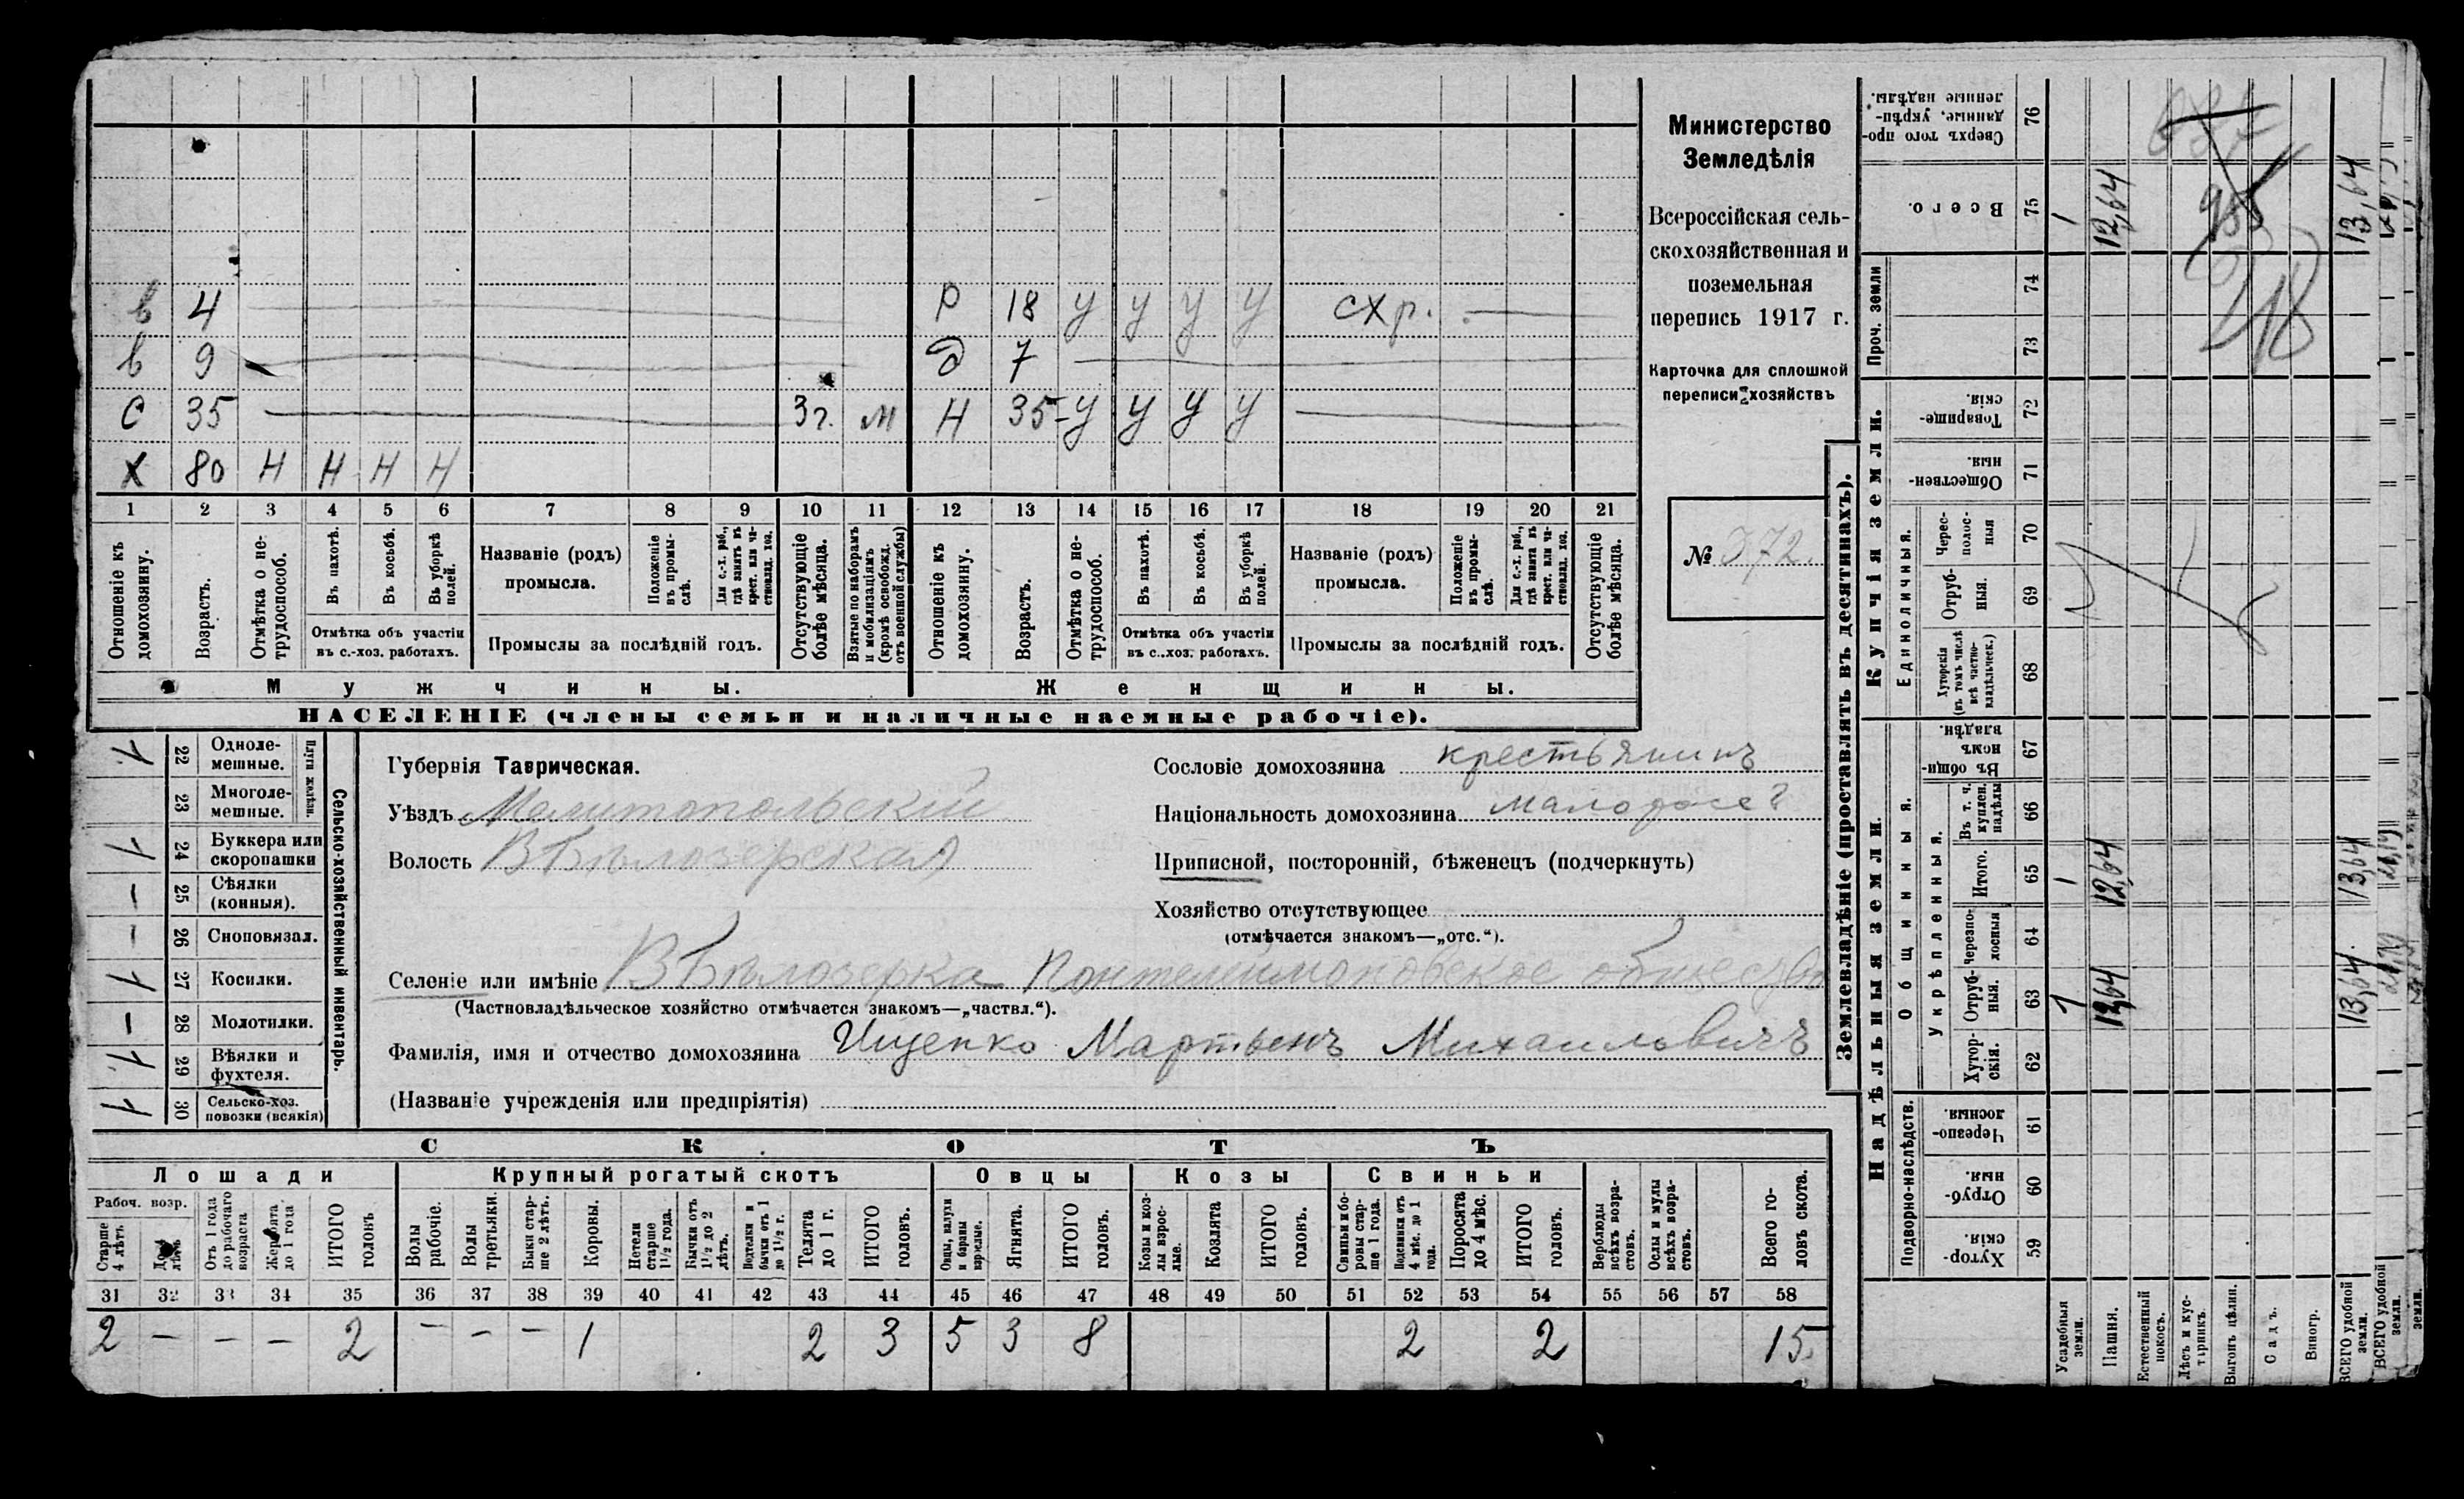 в 4 Р 18 у у у у схр. —
в 9 — д 7 —
С 35 — 3г. м Н 35 - у у у у —
Х 80 Н Н Н Н
1 2 3 4 5 6 7 8 9 10 11 12 13 14 15 16 17 18 19 20 21
Отношеніе къ домохозяину.
Возрастъ.
Отмѣтка о нетрудоспособ.
Въ пахотѣ.
Въ косьбѣ.
Въ уборкѣ полей.
Отмѣтка объ участіи въ с.-хоз. работахъ.
Названіе (родъ) промысла.
Положеніе въ промыслѣ.
Для с.-х. раб., гдѣ занятъ въ крест. или частновлад. хоз.
Промыслы за послѣдній годъ.
Отсутствующіе болѣе мѣсяца.
Взятые по наборамъ и мобилизаціямъ (кромѣ освобожд. отъ военной службы)
Отношеніе къ домохозяину.
Возрастъ.
Отмѣтка о нетрудоспособ.
Въ пахотѣ.
Въ косьбѣ.
Въ уборкѣ полей.
Отмѣтка объ участіи въ с.-хоз. работахъ.
Названіе (родъ) промысла.
Положеніе въ промыслѣ.
Для с.-х. раб., гдѣ занята въ крест. или частновлад. хоз.
Промыслы за послѣдній годъ.
Отсутствующіе болѣе мѣсяца.
Мужчины. Женщины.
НАСЕЛЕНІЕ (члены семьи и наличные наемные рабочіе).
Министерство
Земледѣлія
Всероссійская сель-
скохозяйственная и
поземельная
перепись 1917 г.
Карточка для сплошной
переписи хозяйствъ
№ 372.
Сельско-хозяйственный инвентарь.
Плуги желѣзн.
1 22 Одноле-мешные.
23 Многоле-мешные.
1 24 Буккера или скоропашки
— 25 Сѣялки (конныя).
— 26 Сноповязал.
1 27 Косилки.
— 28 Молотилки.
1 29 Вѣялки и фухтеля.
1 30 Сельско-хоз. повозки (всякія)
Губернія Таврическая.
Уѣздъ Мелитопольскій
Волость В Бѣлозерская
Селеніе или имѣніе В Бѣлозерка Понтелеимоновское общество
(Частновладѣльческое хозяйство отмѣчается знакомъ—„частвл.“).
Фамилія, имя и отчество домохозяина Ищенко Мартынъ Михаиловичъ
(Названіе учрежденія или предпріятія)
Сословіе домохозяина крестьянинъ
Національность домохозяина малоросс
Приписной, посторонній, бѣженецъ (подчеркнуть)
Хозяйство отсутствующее
(отмѣчается знакомъ—„отс.“).
СКОТЪ
Лошади Крупный рогатый скотъ Овцы Козы Свиньи
Рабоч. возр.
Старше 4 лѣтъ
лѣтъ
Отъ 1 года до рабочаго возраста
Жеребята до 1 года
ИТОГО головъ
Волы рабочіе.
Волы третьяки.
Быки старше 2 лѣтъ.
Коровы.
Нетели старше 1½ года.
Бычки отъ 1½ до 2 лѣтъ.
Подтелки и бычки отъ 1 до 1½ г.
Телята до 1 г.
ИТОГО головъ.
Овцы, валухи и бараны взрослые.
Ягнята.
ИТОГО головъ.
Козы и козлы взрослые.
Козлята
ИТОГО головъ.
Свиньи и боровы старше 1 года.
Подсвинки отъ 4 мѣс. до 1 года.
Поросята до 4 мѣс.
ИТОГО головъ.
Верблюды всѣхъ возрастовъ.
Ослы и мулы всѣхъ возрастовъ.
Всего головъ скота.
31 32 33 34 35 36 37 38 39 40 41 42 43 44 45 46 47 48 49 50 51 52 53 54 55 56 57 58
2 — — — 2 — — — 1 2 3 5 3 8 2 2 15
Землевладѣніе (проставлять въ десятинахъ).
Купчія земли.
Надѣльныя земли.
Сверхъ того проданные, укрѣпленные надѣлы. 76
Всего. 75 1 12,64 13,64
Проч. земли 74 73
Товарищескія. 72
Общественныя. 71
Единоличныя.
Чересполосныя 70
Отрубныя. 69
Хуторскія (въ томъ числѣ всѣ частновладѣльческ.) 68
Общинныя.
Въ общинномъ владѣн. 67
Укрѣпленныя.
Въ т. ч. куплен. надѣлы 66
Итого. 65 1 12,64 13,64
Черезполосныя 64
Отрубныя. 63 1 12,64 13,64
Хуторскія. 62
Подворно-наслѣдств.
Черезполосныя. 61
Отрубныя. 60
Хуторскія. 59
Усадебныя земли.
Пашня.
Естественный покосъ.
Лѣсъ и кустарникъ.
Выгонъ цѣлин.
Садъ.
Виногр.
ВСЕГО удобной земли.
ВСЕГО удобной земли.
земли.